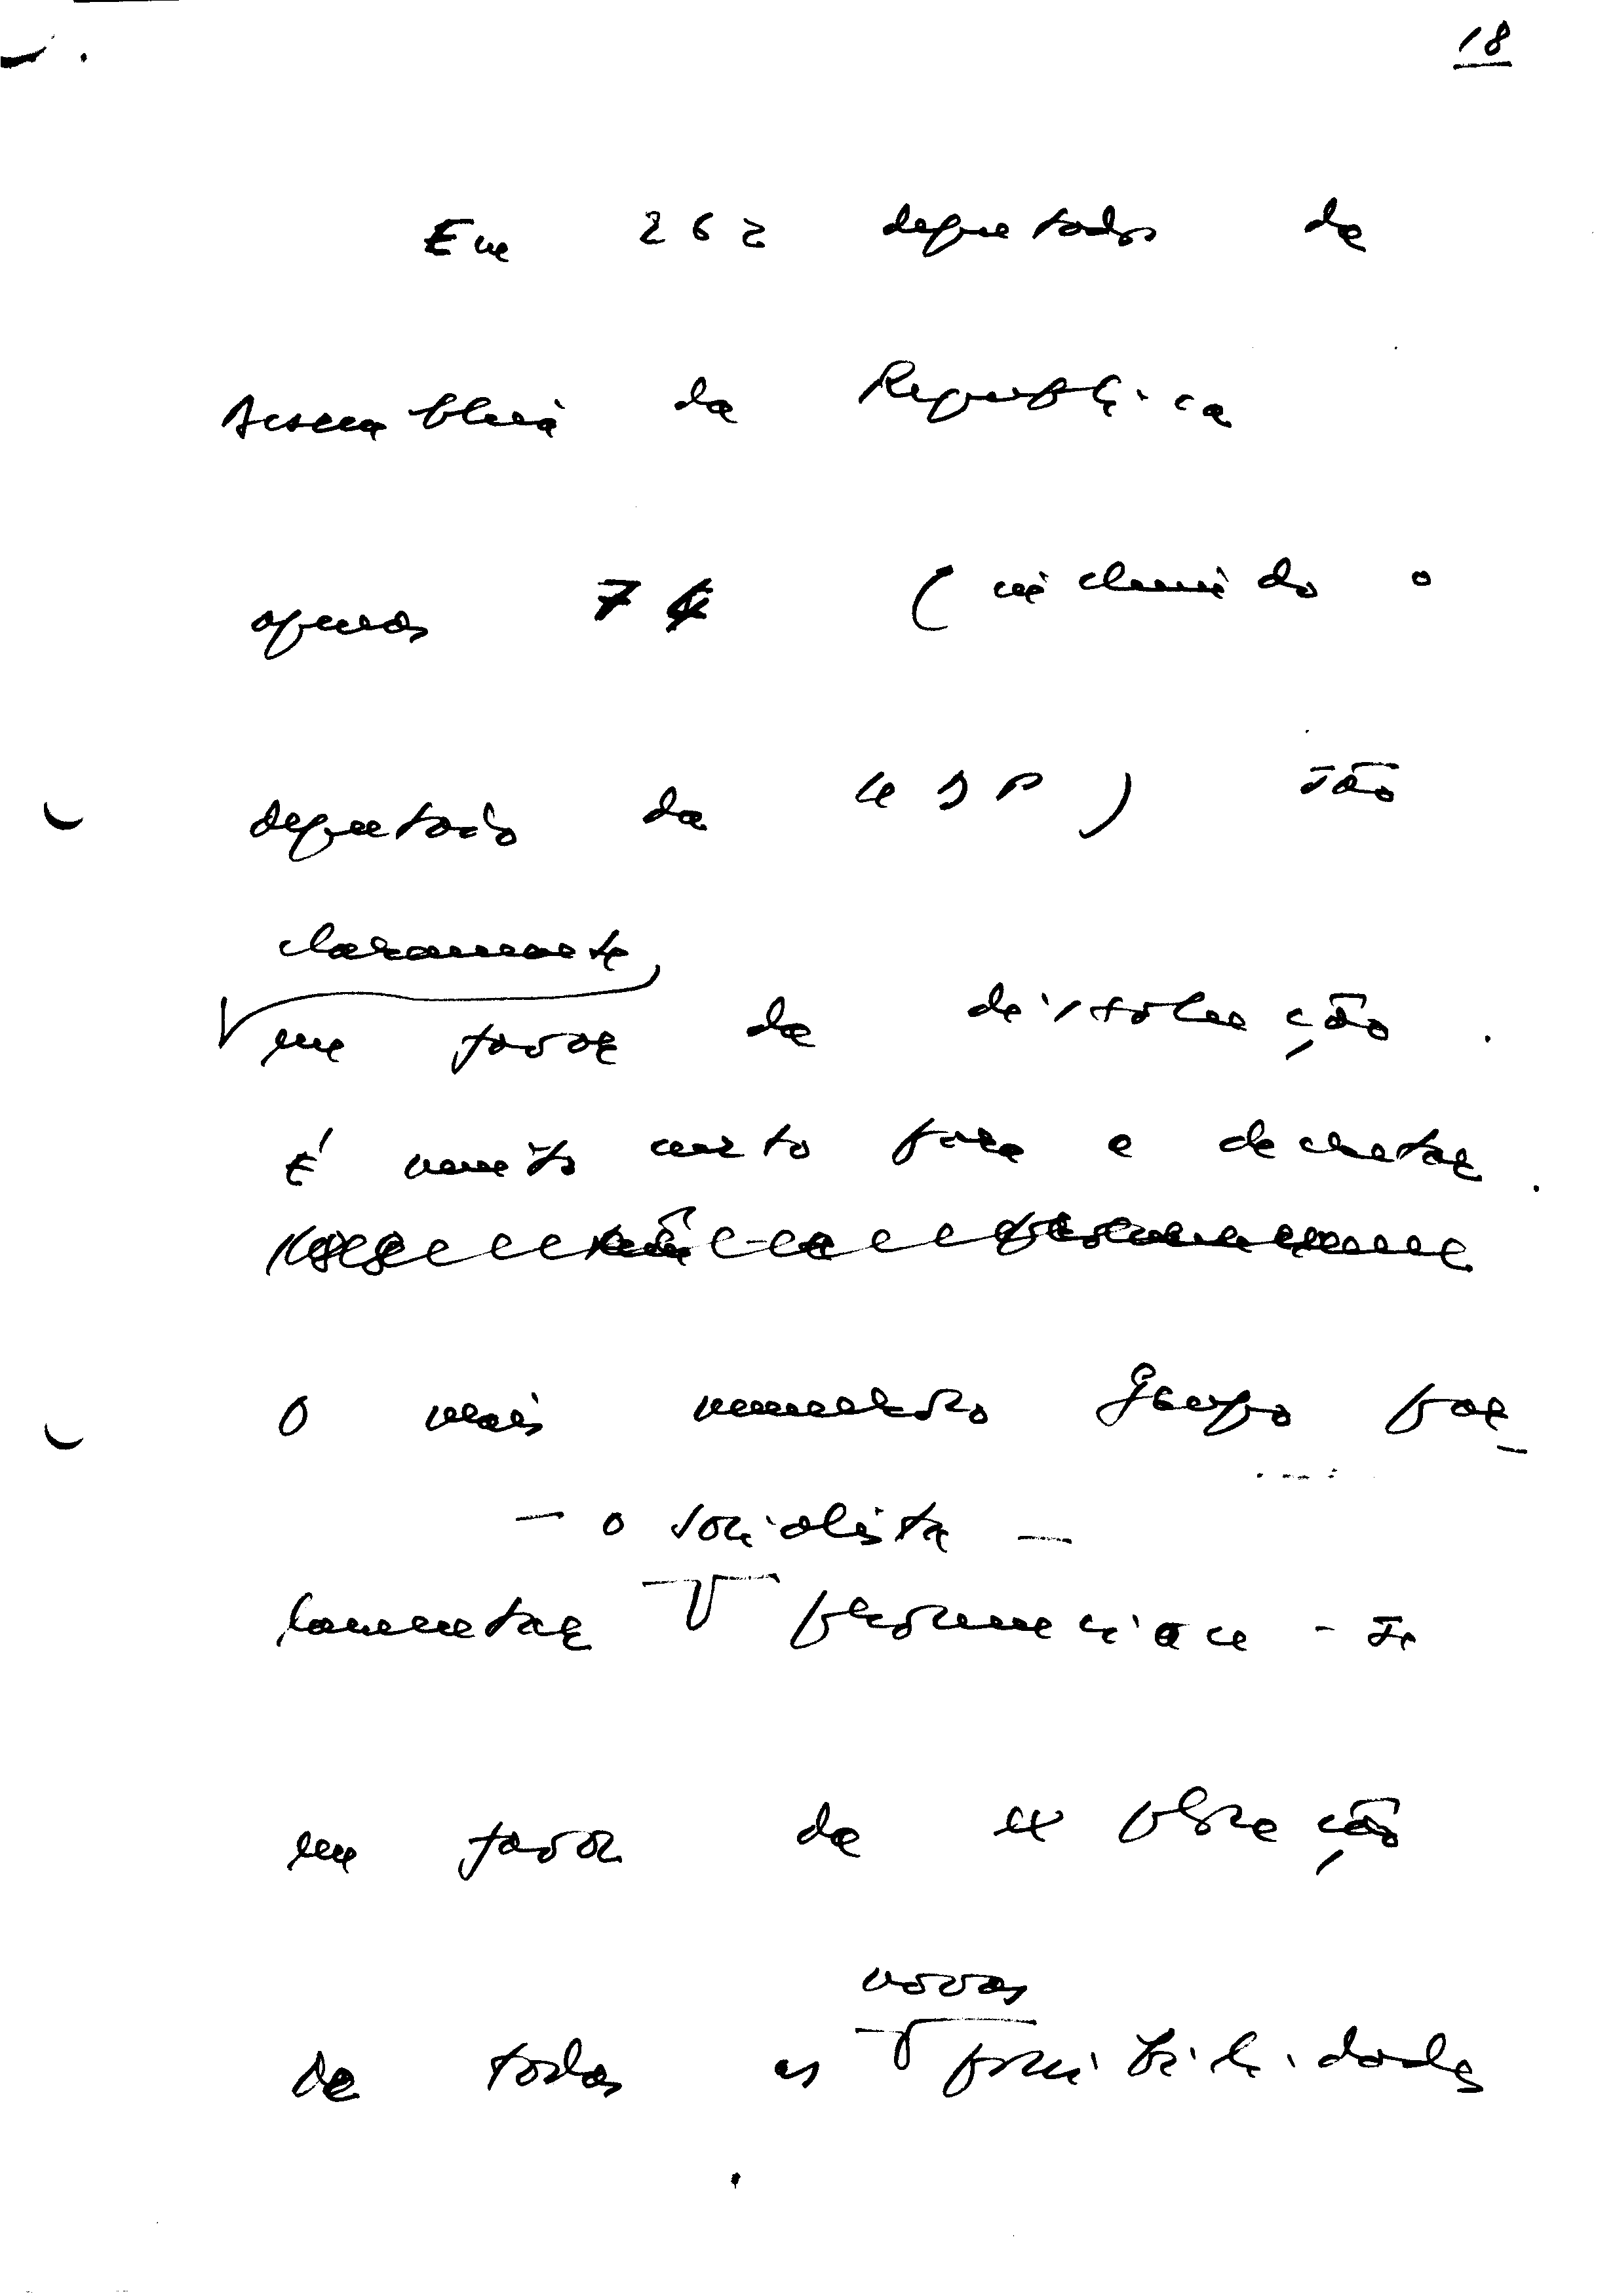 18
Em 262 deputados da
Assembleia da República
apenas 74 (incluindo o
deputado da UDP) são
claramente
em favor da dissolução.
É muito curto para a decretar.
O mais numeroso Grupo par-
- o socialista -
lamentar pronuncia-se
em favor da exploração
de todas as novas possibilidades